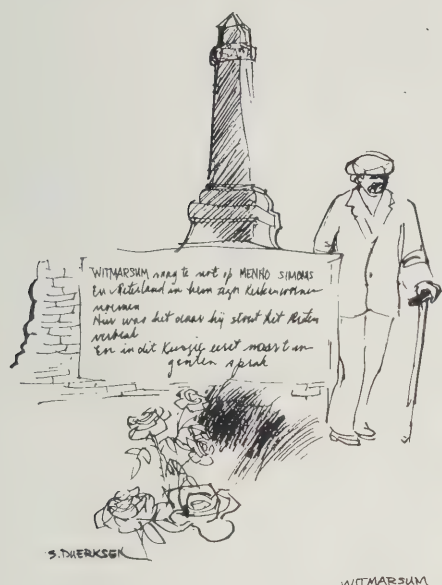 WITMARSUM mag te not op MENNO SIMONS
En Peterland in hem zign Kerkenvormer
noemen
Hier was het daar hij stout het
verbrak
En in dit eerst naar t in
geuten sprak
S. DUERKSEN
WITMARSUM